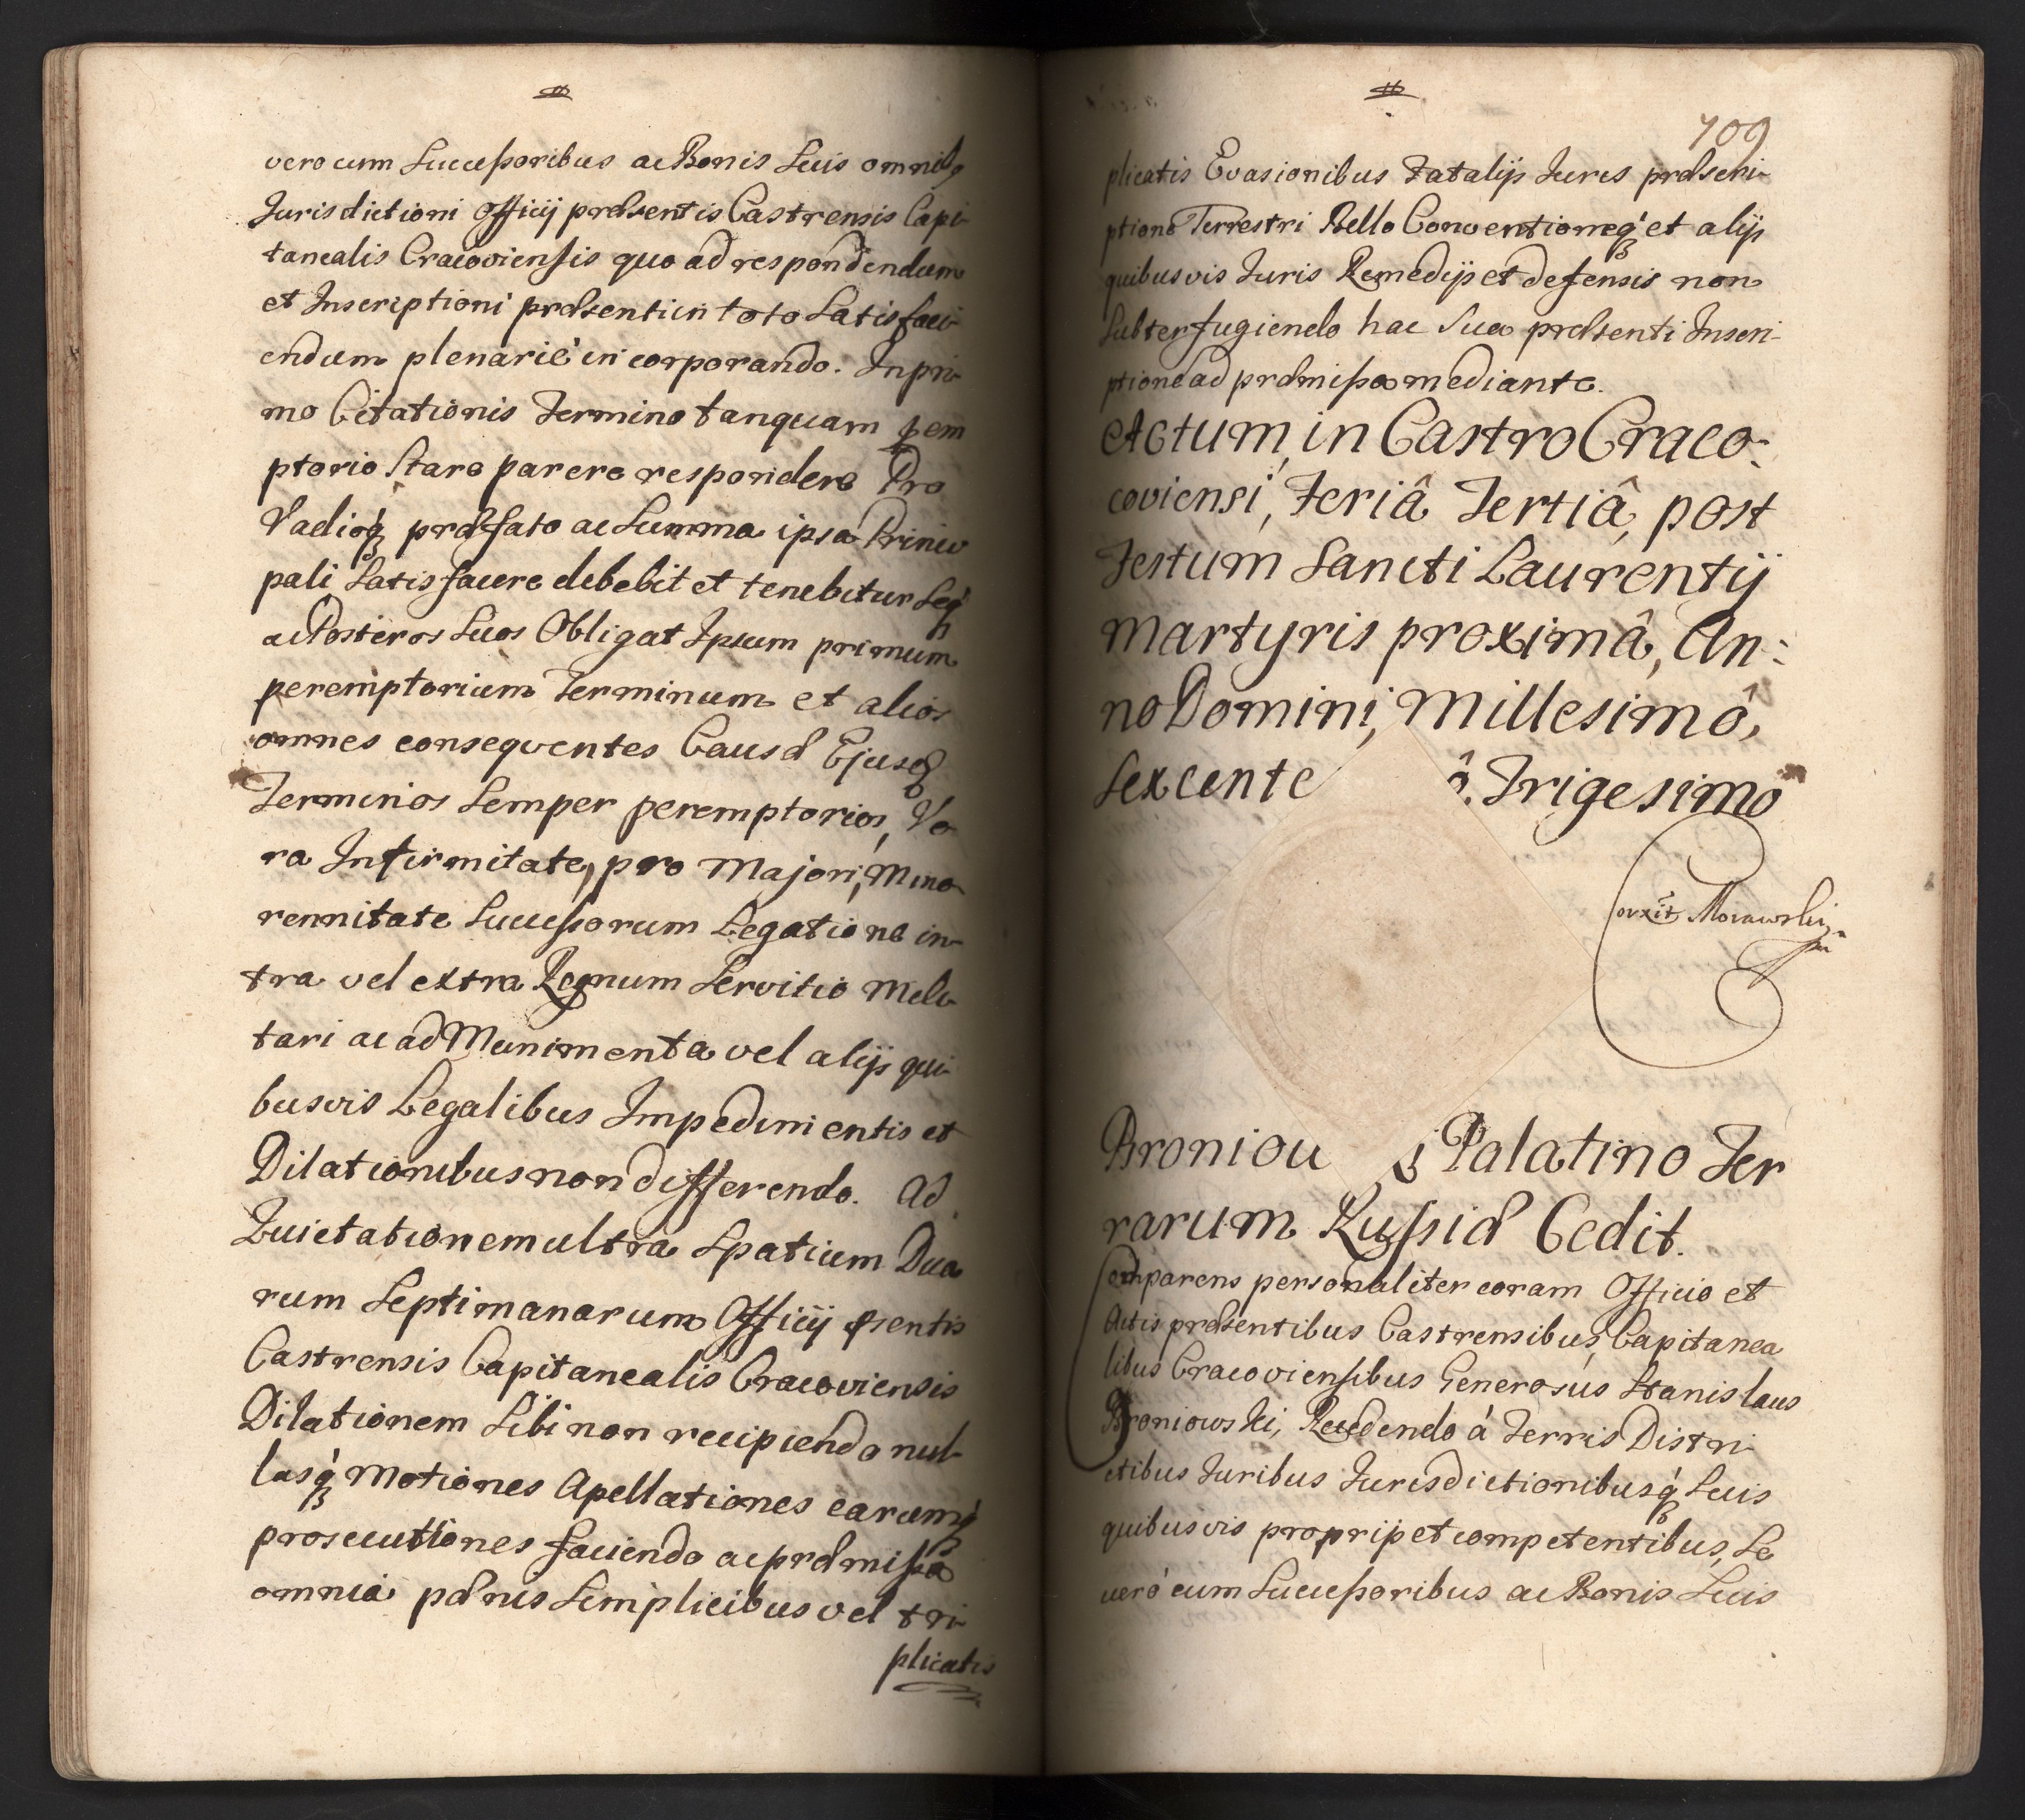 vero cum Successoribus ac Bonis Suis omnibq
Jurisdictioni Officij præsentis Castrensis Capi-
tanealis Cracoviensis quo ad respondendum
et Inscriptioni præsenti in toto Satisfaci-
endum plenariè incorporando. In pri-
mo Citationis Termino tanquam pem
ptorio Stare parere respondere Pro
Vadioq præfato ac Summa ipsa Princi
pali Satisfacere debebit et tenebitur Seq
ac Posteros Suos Obligat Ipsum primum
peremptorium Terminum et alios
omnes consequentes Causæ Ejusq
Terminos Semper peremptorios, Ve
ra Infirmitate, pro Majori, Mino
rennitate Successorum Legatione in-
tra vel extra Regnum Servitio Mili-
tari ac ad Munimenta vel alijs qui-
busvis Legalibus Impedimentis et
Dilationibus non differendo. Ad
Quietationem ultra Spatium Dua
rum Septimanarum Officij psentis
Castrensis Capitanealis Cracoviensis
Dilationem Sibi non recipiendo nul-
lasq Motiones Apellationes earumq
prosecutiones faciendo ac præmissa
omnia pænis Simplicibus vel tri-
plicatis
709
plicatis Evasionibus Fatalijs Juris præscri-
ptione Terrestri Bello Conventioneq et alijs
quibusvis Juris Remedijs et defensis non
Subterfugiendo hac Sua præsenti Inscri-
ptione ad præmissa mediante.
Actum, in Castro Craco-
coviensi, Feriâ Tertiâ, post
Festum Sancti Laurentij
Martyris proximâ, An:
no Domini, Millesimô,
Sexcente ô. Trigesimô
Corxit Morawski
Broniou s Palatino Ter
rarum Russiæ Cedit.
Comparens personaliter coram Officio et
Actis præsentibus Castrensibus Capitanea
libus Cracoviensibus Generosus Stanislaus
Broniowski, Recedendo à Terris Distri-
ctibus Juribus Jurisdictionibusq Suis
quibusvis proprijs et competentibus, Se
verò cum Successoribus ac Bonis Suis